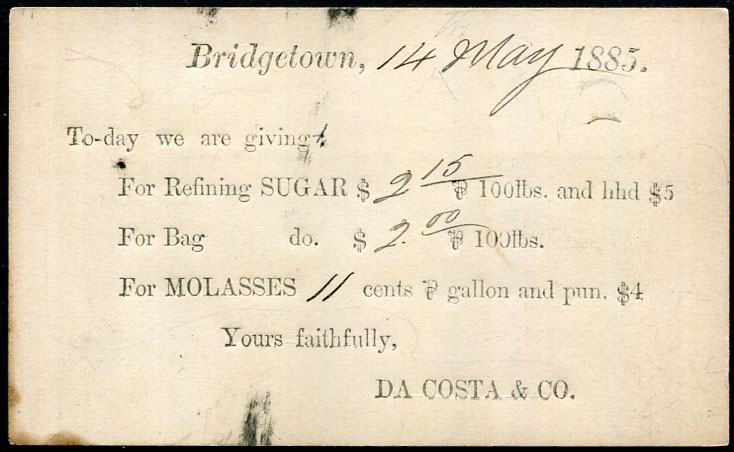 Bridgetown, 14 May 1885.
To-day we are giving
For Refining SUGAR $ 2 15 ⅌ 100lbs. and hhd $5
For Bag do. $ 2. 00 ⅌ 100lbs.
For MOLASSES 11 cents ⅌ gallon and pun. $4
Yours faithfully,
DA COSTA & CO.